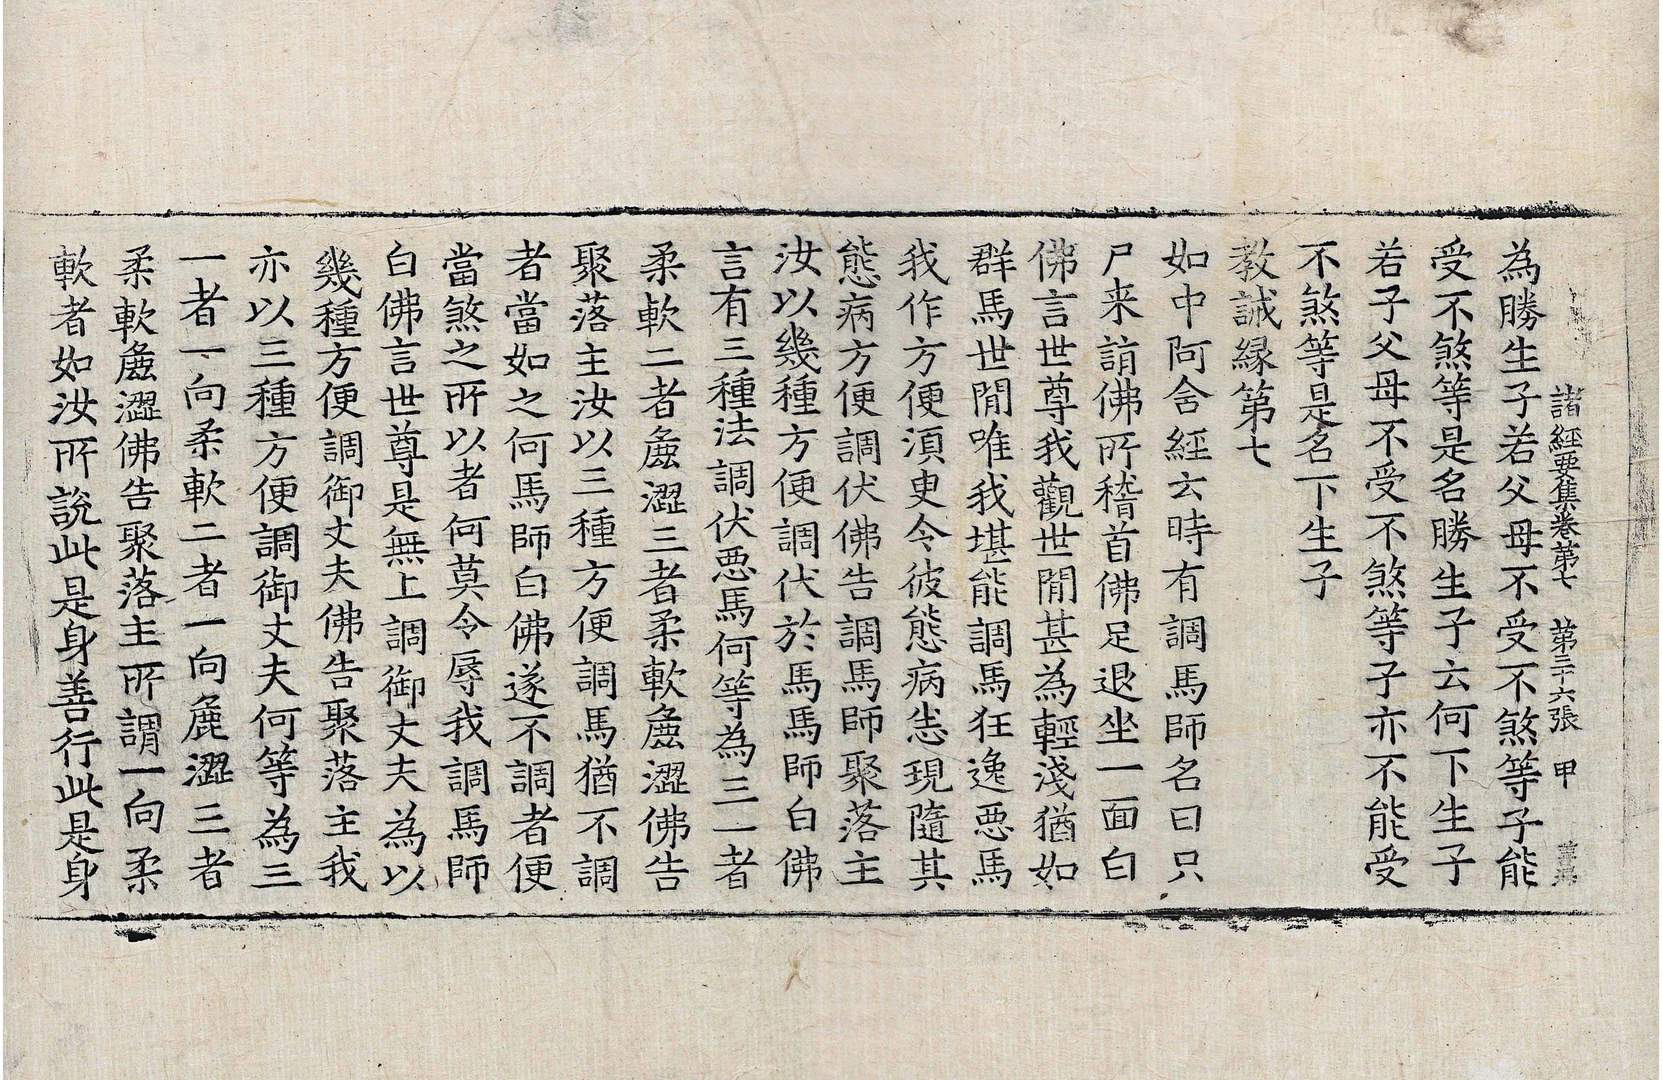 諸經要集卷第七 第三十六張 甲
為勝生子若父母不受不煞等子能
受不煞等是名勝生子云何下生子
若子父母不受不煞等子亦不能受
不煞等是名下生子
教誡緣第七
如中阿含經云時有調馬師名曰只
尸来詣佛所稽首佛足退坐一面白
佛言世尊我觀世閒甚為輕淺猶如
群馬世閒唯我堪能調馬狂逸惡馬
我作方便湏臾令彼態病恙現隨其
態病方便調伏佛告調馬師聚落主
汝以幾種方便調伏於馬馬師白佛
言有三種法調伏惡馬何等為三一者
柔軟二者麁澀三者柔軟麁澀佛告
聚落主汝以三種方便調馬猶不調
者當如之何馬師白佛遂不調者便
當煞之所以者何莫令辱我調馬師
白佛言世尊是無上調御丈夫為以
幾種方便調御丈夫佛告聚落主我
亦以三種方便調御丈夫何等為三
一者一向柔軟二者一向麁澀三者
柔軟麁澀佛告聚落主所謂一向柔
軟者如汝所說此是身善行此是身